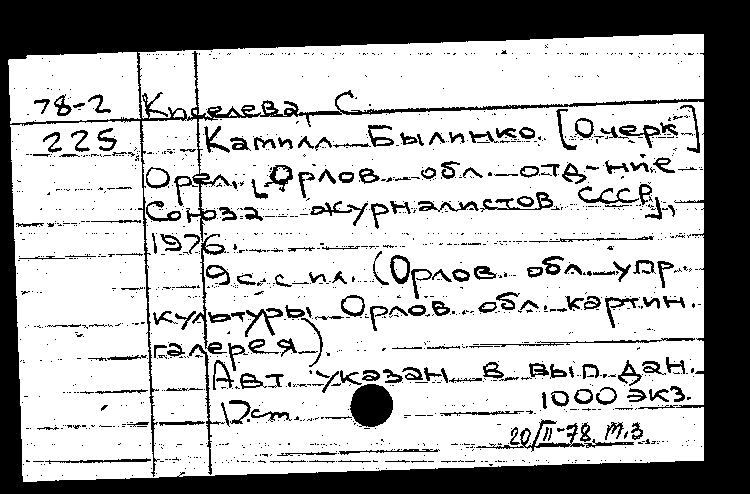 78-2 Киселева, С.
225 Камилл Былинко. [Очерк]
Орел, [Орлов. обл. отд-ние
Союза журналистов СССР],
1976.
9 с. с ил. (Орлов. обл. упр.
культуры. Орлов. обл. картин.
галерея).
Авт. указан в вып. дан.
Б.ст. 1000 экз.
20/II-78. М.З.